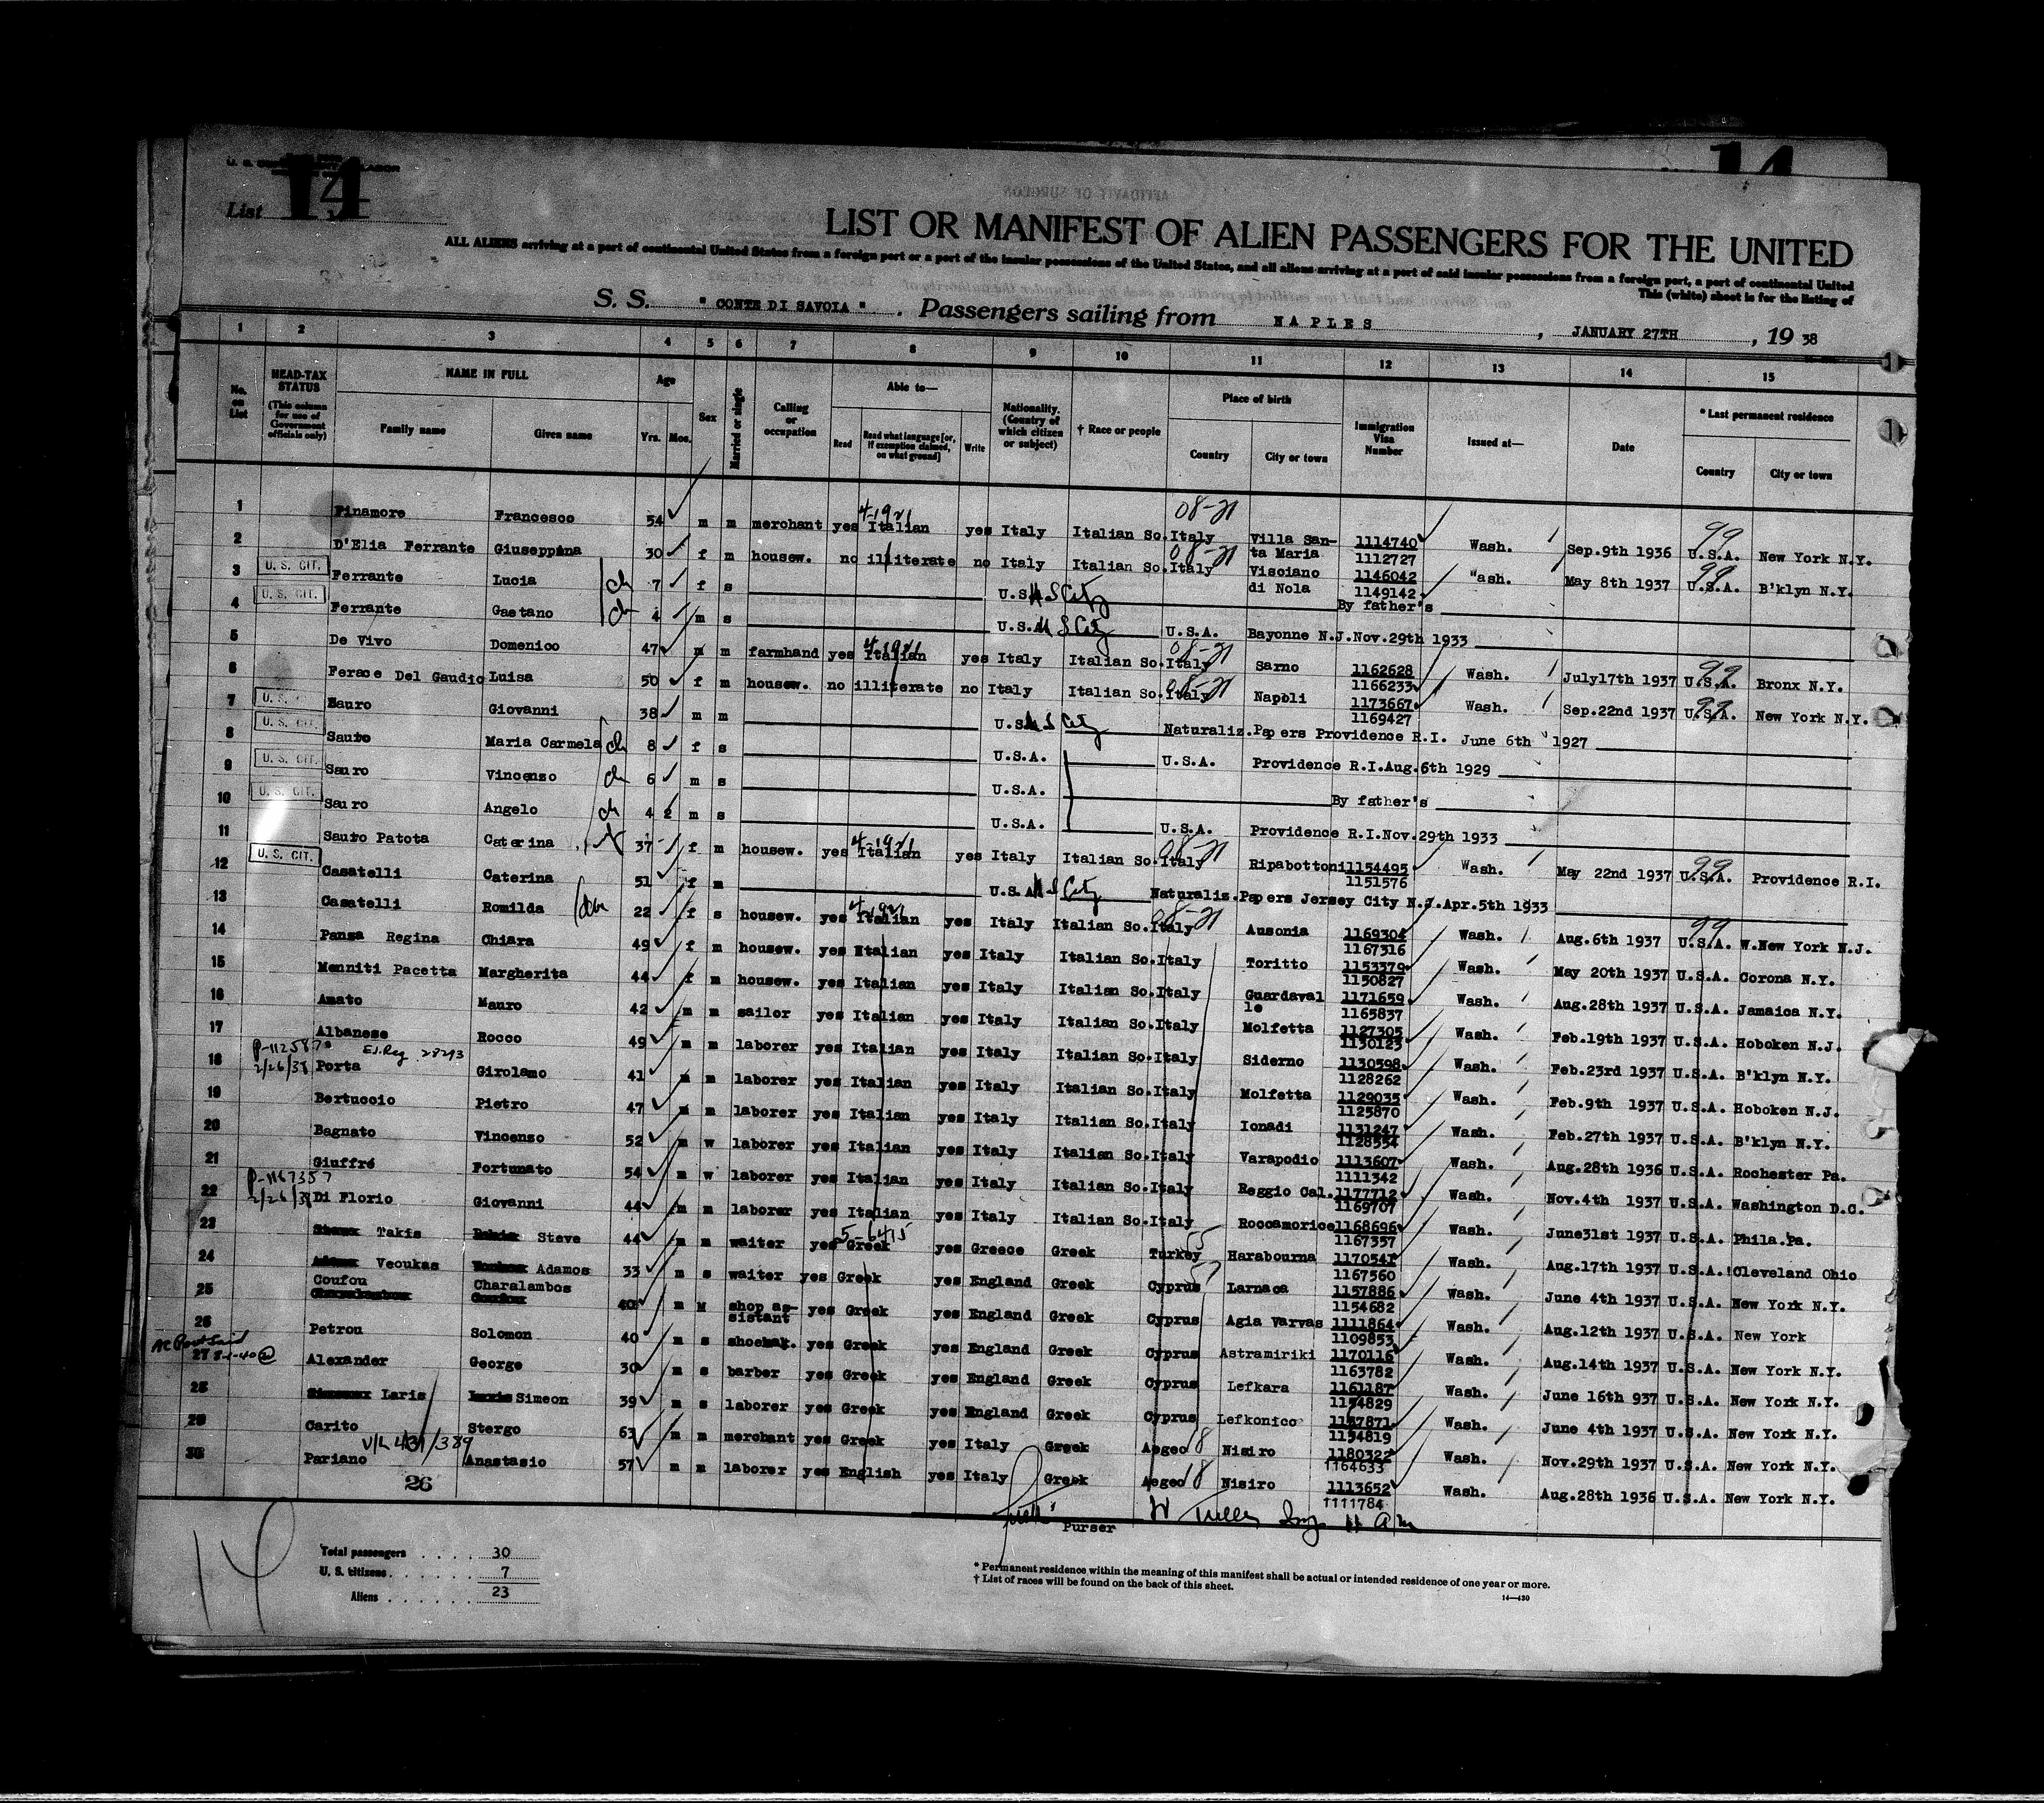 14
14
U. S. LABOR
List 14
AFFIDAVIT OF SURGEON
LIST OR MANIFEST OF ALIEN PASSENGERS FOR THE UNITED
ALL ALIENS arriving at a port of continental United States from a foreign port or a port of the insular possessions of the United States, and all aliens arriving at a port of said insular possessions from a foreign port, a port of continental United
This (white) sheet is for the listing of
S. S. " CONTE DI SAVOIA " . Passengers sailing from NAPLES , JANUARY 27TH , 19 38
1 2 3 4 5 6 7 8 9 10 11 12 13 14 15
No. on List
HEAD-TAX STATUS (This column for use of Government officials only)
NAME IN FULL Family name Given name
Age Yrs. Mos.
Sex
Married or single
Calling or occupation
Able to— Read Read what language [or, if exemption claimed, on what ground] Write
Nationality. (Country of which citizen or subject)
† Race or people
Place of birth Country City or town
Immigration Visa Number
Issued at—
Date
* Last permanent residence Country City or town
1 Finamore Francesco 54 m m merchant yes 4-1921 Italian yes Italy Italian So. Italy 08-21 Villa Santa Maria 1114740 1112727 Wash. Sep.9th 1936 99 U.S.A. New York N.Y.
2 D'Elia Ferrante Giuseppina 30 f m housew. no illiterate no Italy Italian So. Italy 08-21 Visciano di Nola 1146042 1149142 "ash. May 8th 1937 99 U.S.A. B'klyn N.Y.
3 U. S. CIT. Ferrante Lucia ch 7 f s U.S.A. U S City By father's
4 U. S. CIT. Ferrante Gaetano ch 4 m s U.S.A. U S City U.S.A. Bayonne N.J. Nov.29th 1933
5 De Vivo Domenico 47 m m farmhand yes 4-1921 Italian yes Italy Italian So. Italy 08-21 Sarno 1162628 1166233 Wash. July17th 1937 99 U.S.A. Bronx N.Y.
6 Ferace Del Gaudio Luisa 50 f m housew. no illiterate no Italy Italian So. Italy 08-21 Napoli 1173667 1169427 Wash. Sep.22nd 1937 99 U.S.A. New York N.Y.
7 U. S. CIT. Sauro Giovanni 38 m m U.S.A. U S City Naturaliz. Papers Providence R.I. June 6th 1927
8 U. S. CIT. Sauro Maria Carmela ch 8 f s U.S.A. U.S.A. Providence R.I. Aug.6th 1929
9 U. S. CIT. Sauro Vincenzo ch 6 m s U.S.A. By father's
10 U. S. CIT. Sauro Angelo ch 4 2 m s U.S.A. U.S.A. Providence R.I. Nov.29th 1933
11 Sauro Patota Caterina 37 f m housew. yes 4-1921 Italian yes Italy Italian So. Italy 08-21 Ripabottoni 1154495 1151576 Wash. May 22nd 1937 99 U.S.A. Providence R.I.
12 U. S. CIT. Casatelli Caterina 51 f m U.S.A. U S City Naturaliz. Papers Jersey City N.J. Apr.5th 1933
13 Casatelli Romilda 22 f s housew. yes 4-1921 Italian yes Italy Italian So. Italy 08-21 Ausonia 1169304 1167316 Wash. Aug.6th 1937 99 U.S.A. W.New York N.J.
14 Panza Regina Chiara 49 f m housew. yes Italian yes Italy Italian So. Italy Toritto 1153379 1150827 Wash. May 20th 1937 U.S.A. Corona N.Y.
15 Menniti Pacetta Margherita 44 f m housew. yes Italian yes Italy Italian So. Italy Guardavalle 1171659 1165837 Wash. Aug.28th 1937 U.S.A. Jamaica N.Y.
16 Amato Mauro 42 m m sailor yes Italian yes Italy Italian So. Italy Molfetta 1127305 1130123 Wash. Feb.19th 1937 U.S.A. Hoboken N.J.
17 Albanese Rocco 49 m m laborer yes Italian yes Italy Italian So. Italy Siderno 1130598 1128262 Wash. Feb.23rd 1937 U.S.A. B'klyn N.Y.
18 P-1125870 2/26/38 Porta Girolamo 41 m m laborer yes Italian yes Italy Italian So. Italy Molfetta 1129035 1125870 Wash. Feb.9th 1937 U.S.A. Hoboken N.J.
19 Bertuccio Pietro 47 m m laborer yes Italian yes Italy Italian So. Italy Ionadi 1131247 1128554 Wash. Feb.27th 1937 U.S.A. B'klyn N.Y.
20 Bagnato Vincenzo 52 m w laborer yes Italian yes Italy Italian So. Italy Varapodio 1113607 1111342 Wash. Aug.28th 1936 U.S.A. Rochester Pa.
21 Giuffré Fortunato 54 m w laborer yes Italian yes Italy Italian So. Italy Reggio Cal. 1177712 1169707 Wash. Nov.4th 1937 U.S.A. Washington D.C.
22 P-1167357 2/26/38 Di Florio Giovanni 44 m m laborer yes Italian yes Italy Italian So. Italy Roccamorice 1168696 1167357 Wash. June31st 1937 U.S.A. Phila. Pa.
23 Takis Steve 44 m m waiter yes 5-6415 Greek yes Greece Greek Turkey Harabourna 1170541 1167560 Wash. Aug.17th 1937 U.S.A. Cleveland Ohio
24 Veoukas Adamos 33 m s waiter yes Greek yes England Greek Cyprus Larnaca 1157886 1154682 Wash. June 4th 1937 U.S.A. New York N.Y.
25 Coufou Charalambos 40 m M shop assistant yes Greek yes England Greek Cyprus Agia Varvas 1111864 1109853 Wash. Aug.12th 1937 U.S.A. New York
26 Petrou Solomon 40 m s shoemak. yes Greek yes England Greek Cyprus Astramiriki 1170116 1163782 Wash. Aug.14th 1937 U.S.A. New York N.Y.
27 Alexander George 30 m s barber yes Greek yes England Greek Cyprus Lefkara 1161187 1154829 Wash. June 16th 937 U.S.A. New York N.Y.
28 Laris Simeon 39 m s laborer yes Greek yes England Greek Cyprus Lefkonico 1157871 1154819 Wash. June 4th 1937 U.S.A. New York N.Y.
29 Carito Stergo 63 m m merchant yes Greek yes Italy Greek Aegeo 18 Nisiro 1180322 1164633 Wash. Nov.29th 1937 U.S.A. New York N.Y.
30 V/L 431/389 Pariano Anastasio 57 m m laborer yes English yes Italy Greek Aegeo 18 Nisiro 1113652 1111784 Wash. Aug.28th 1936 U.S.A. New York N.Y.
26
Purser
14
Total passengers . . . . 30
U. S. citizens . . . . . . 7
Aliens . . . . . . 23
* Permanent residence within the meaning of this manifest shall be actual or intended residence of one year or more.
† List of races will be found on the back of this sheet.
14—430